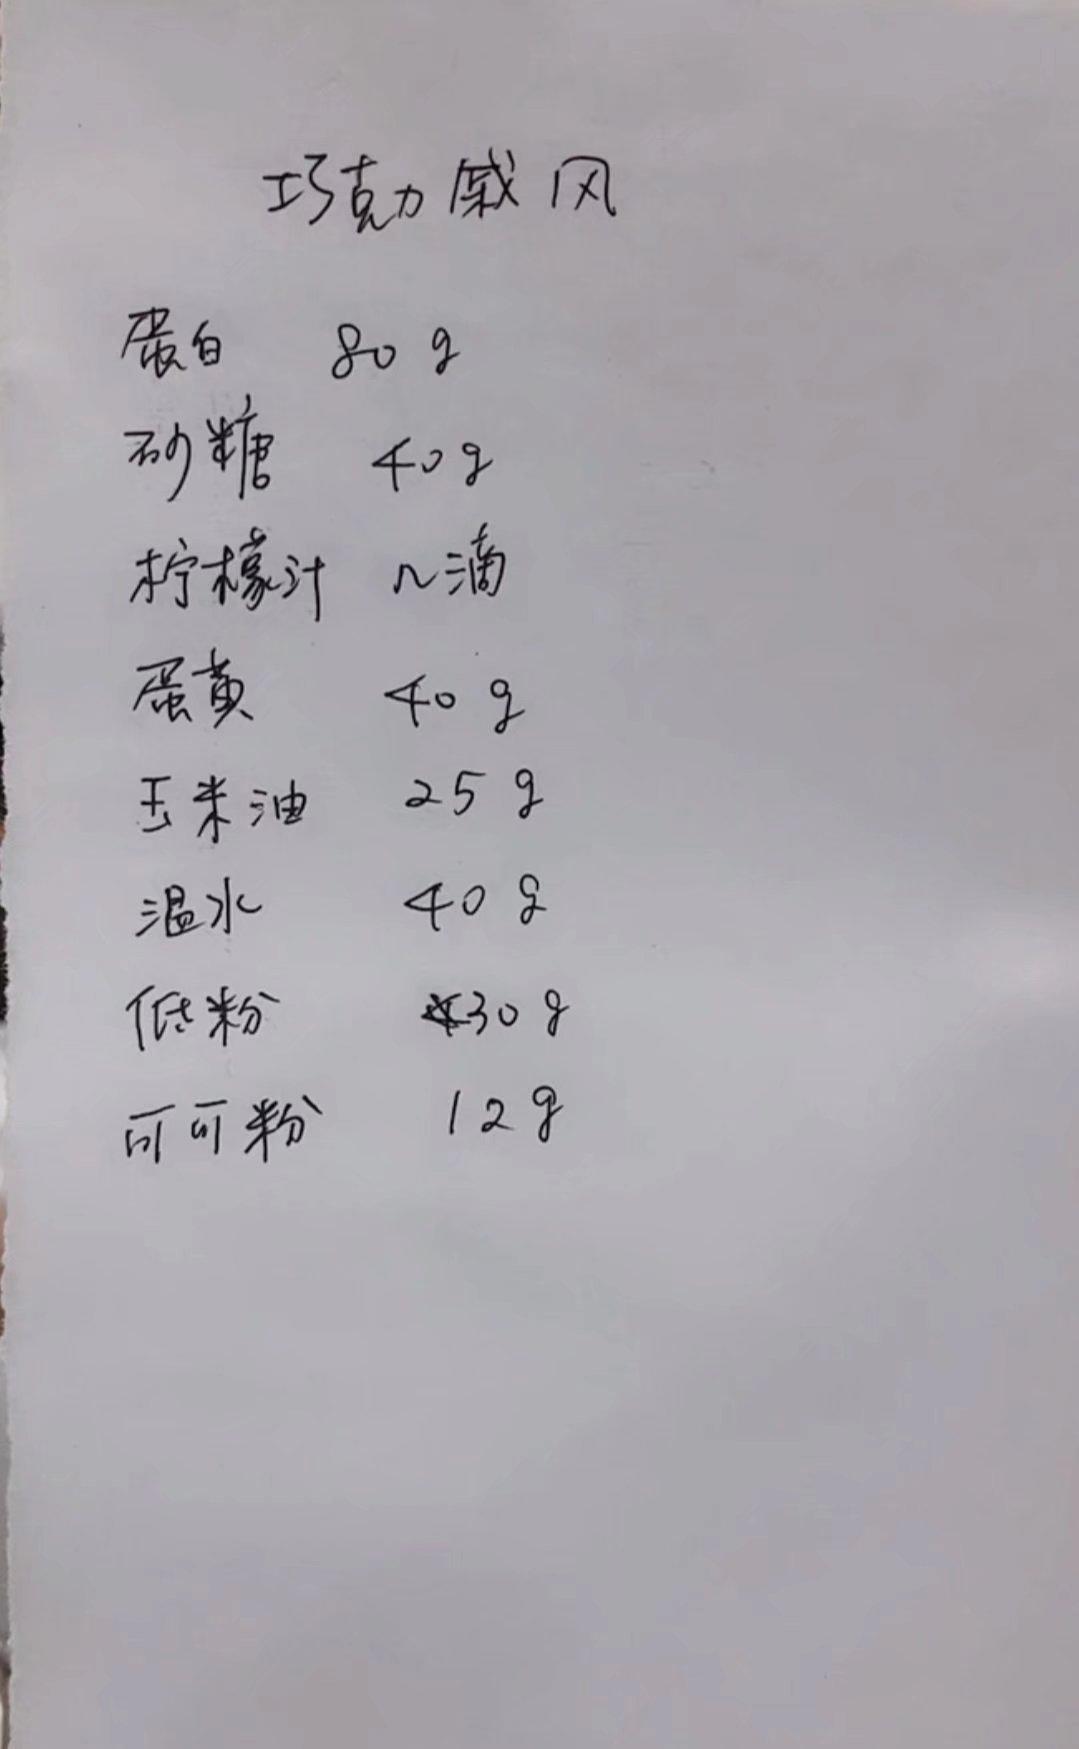 巧克力戚风
蛋白 80g
砂糖 40g
柠檬汁 几滴
蛋黄 40g
玉米油 25g
温水 40g
低粉 30g
可可粉 12g